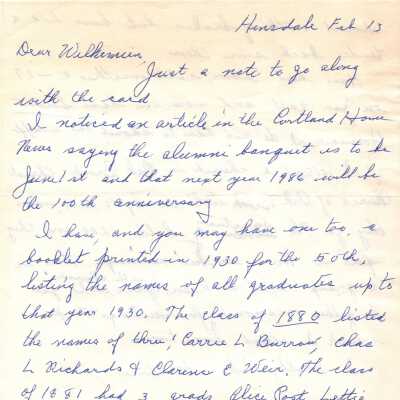 Hinsdale Feb 13
Dear Wilhemien,
Just a note to go along
with the card
I noticed an article in the Cortland Home
News saying the alumni banquet is to be
June 1st and that next year 1986 will be
the 100th anniversary
I have, and you may have one too, a
booklet printed in 1930 for the 50th,
listing the names of all graduates up to
that year 1930. The class of 1880 listed
the names of three! Carrie L Burrow, Chas
L Richards & Clarence E Weir. The class
of 1881 had 3 grads Alice Post, Lettie